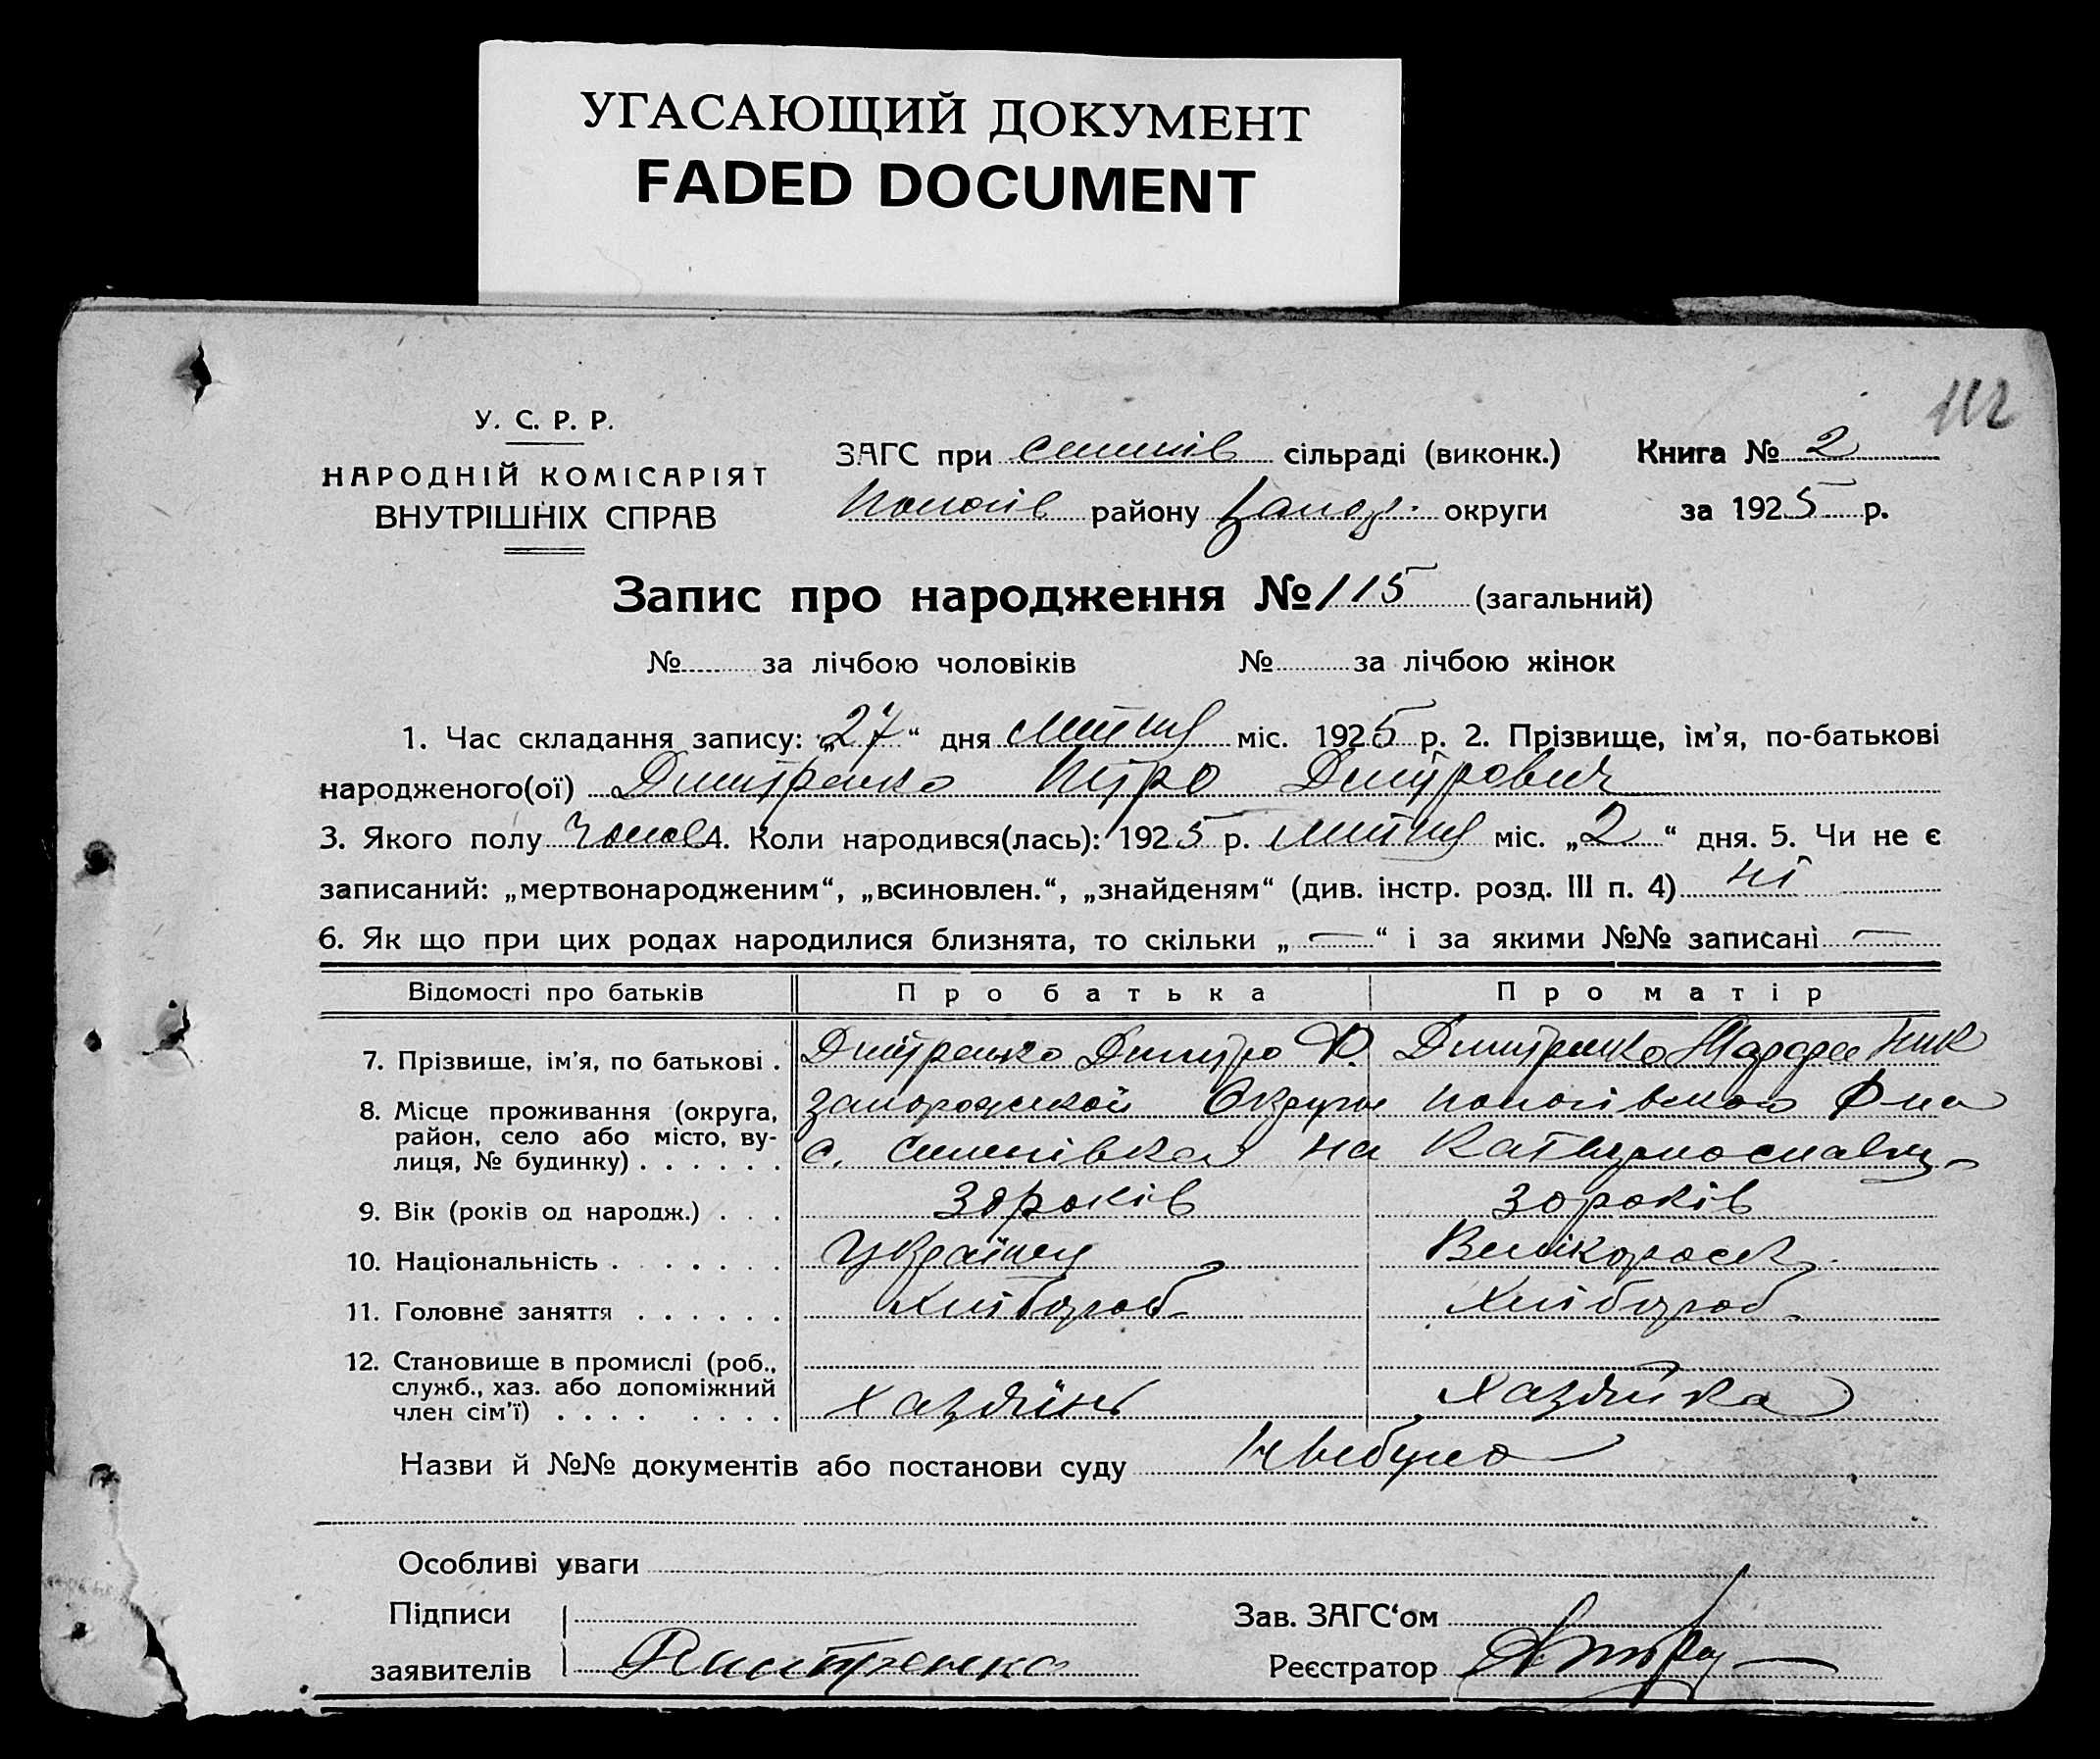 УГАСАЮЩИЙ ДОКУМЕНТ
FADED DOCUMENT
112
У. С. Р. Р.
НАРОДНІЙ КОМІСАРІЯТ
ВНУТРІШНІХ СПРАВ
ЗАГС при сільраді (виконк.)
Пологів району Запор. округи
Книга № 2
за 1925 р.
Запис про народження № 115 (загальний)
№ за лічбою чоловіків № за лічбою жінок
1. Час складання запису: „27“ дня міс. 1925 р. 2. Прізвище, ім'я, по-батькові
народженого(ої) Дмитренко Петро Дмитрович
3. Якого полу Чолов 4. Коли народився(лась): 1925 р. міс. „2“ дня. 5. Чи не є
записаний: „мертвонародженим“, „всиновлен.“, „знайденям“ (див. інстр. розд. III п. 4) ні
6. Як що при цих родах народилися близнята, то скільки „—“ і за якими №№ записані —
Відомості про батьків Про батька Про матір
7. Прізвище, ім'я, по батькові . Дмитренко Дмитро Ф. Дмитренко Ник
8. Місце проживання (округа, район, село або місто, вулиця, № будинку) . . . . . . Запорожской Округи Пологівського Р-на
с. на
9. Вік (років од народж.) . . . 30 років 30 років
10. Національність . . . . . . Українец Великорос
11. Головне заняття . . . . . . Хлібороб Хлібороб
12. Становище в промислі (роб., служб., хаз. або допоміжний член сім'ї) . . . . . . . . хазяїн хазяйка
Назви й №№ документів або постанови суду Не було
Особливі уваги
Підписи
заявителів Дмитренко
Зав. ЗАГС‘ом
Реєстратор